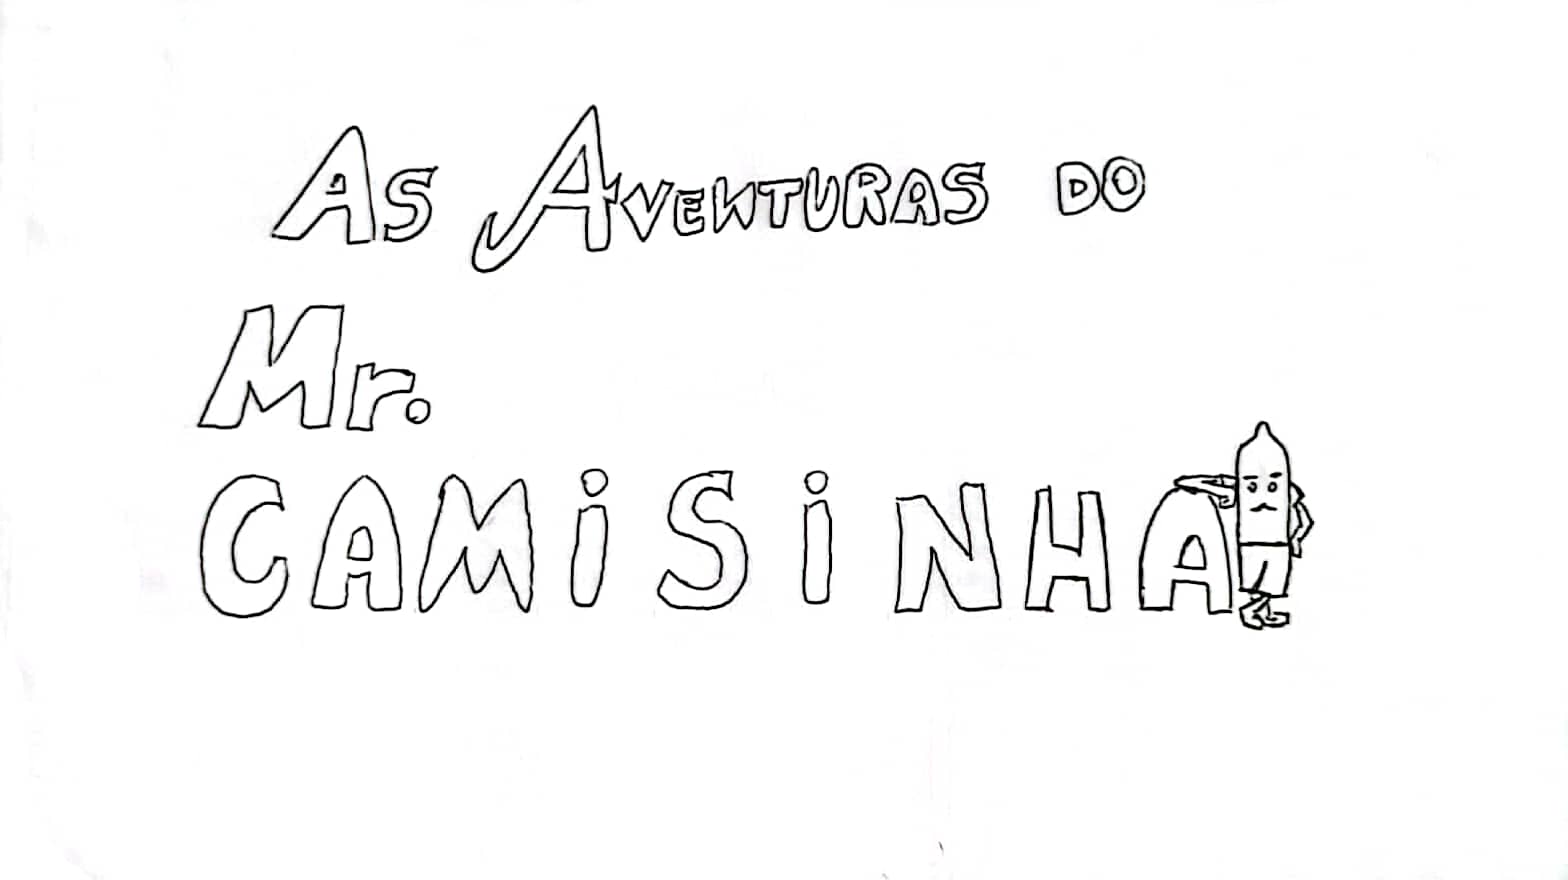 As AVENTURAS DO
Mr.
CAMiSiNHA